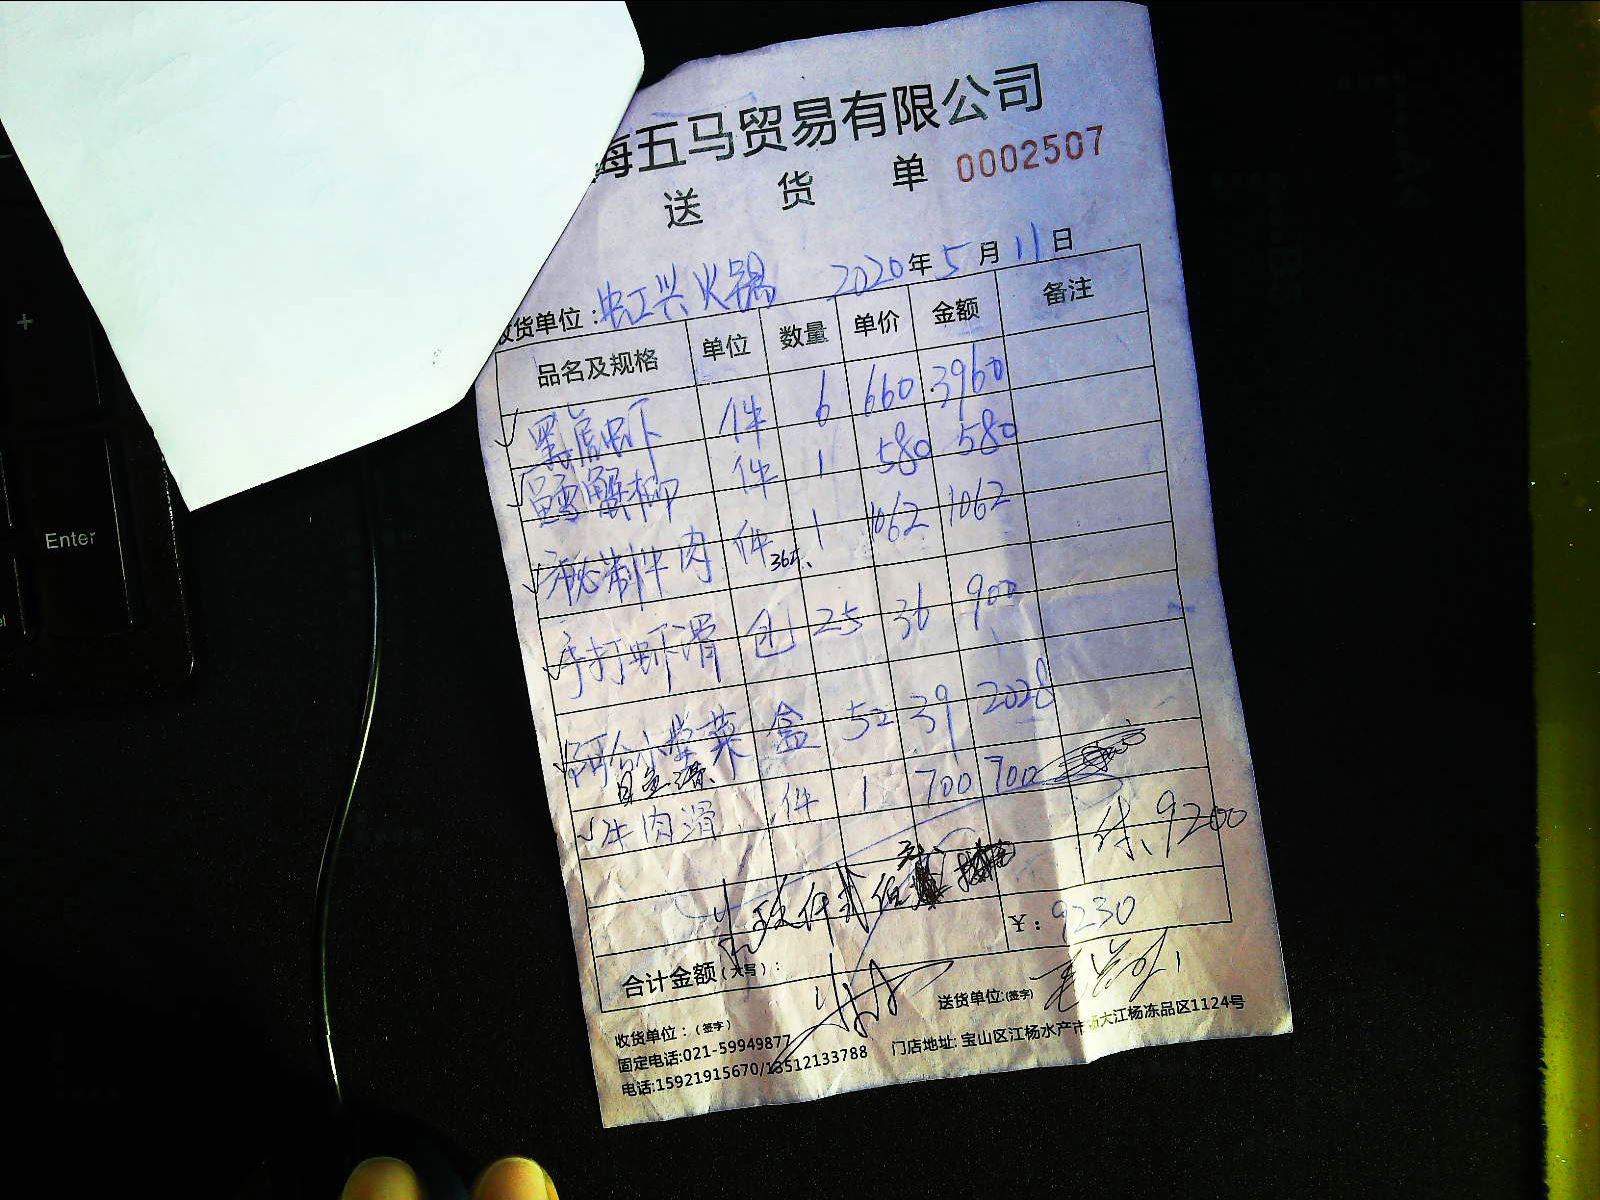 海五马贸易有限公司
送货单 0002507
收货单位:虹兴火锅 2020年5月11日
品名及规格 单位 数量 单价 金额 备注
黑虎虾 件 6 660 3960
鳕蟹柳 件 1 580 580
秘制牛肉 件 1 1062 1062
手打虾滑 包 25 36 900
阿合小紫菜 盒 52 39 2028
牛肉滑 件 1 700 700
9200
合计金额(大写): ¥:9230
收货单位:(签字) 送货单位:(签字)
固定电话:021-59949877
电话:15921915670/13512133788 门店地址:宝山区江杨水产市场大江杨冻品区1124号
Enter
+